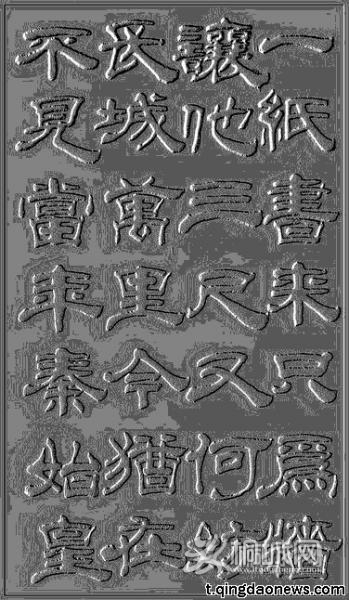 一紙書来只爲牆
讓他三尺又何妨
長城萬里今猶在
不見當年秦始皇
桐城网
t.qingdaonews.com